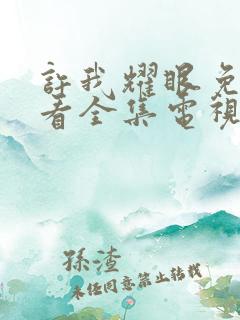 許我耀眼免
看全集電視
孫渣
未经同意禁止转载